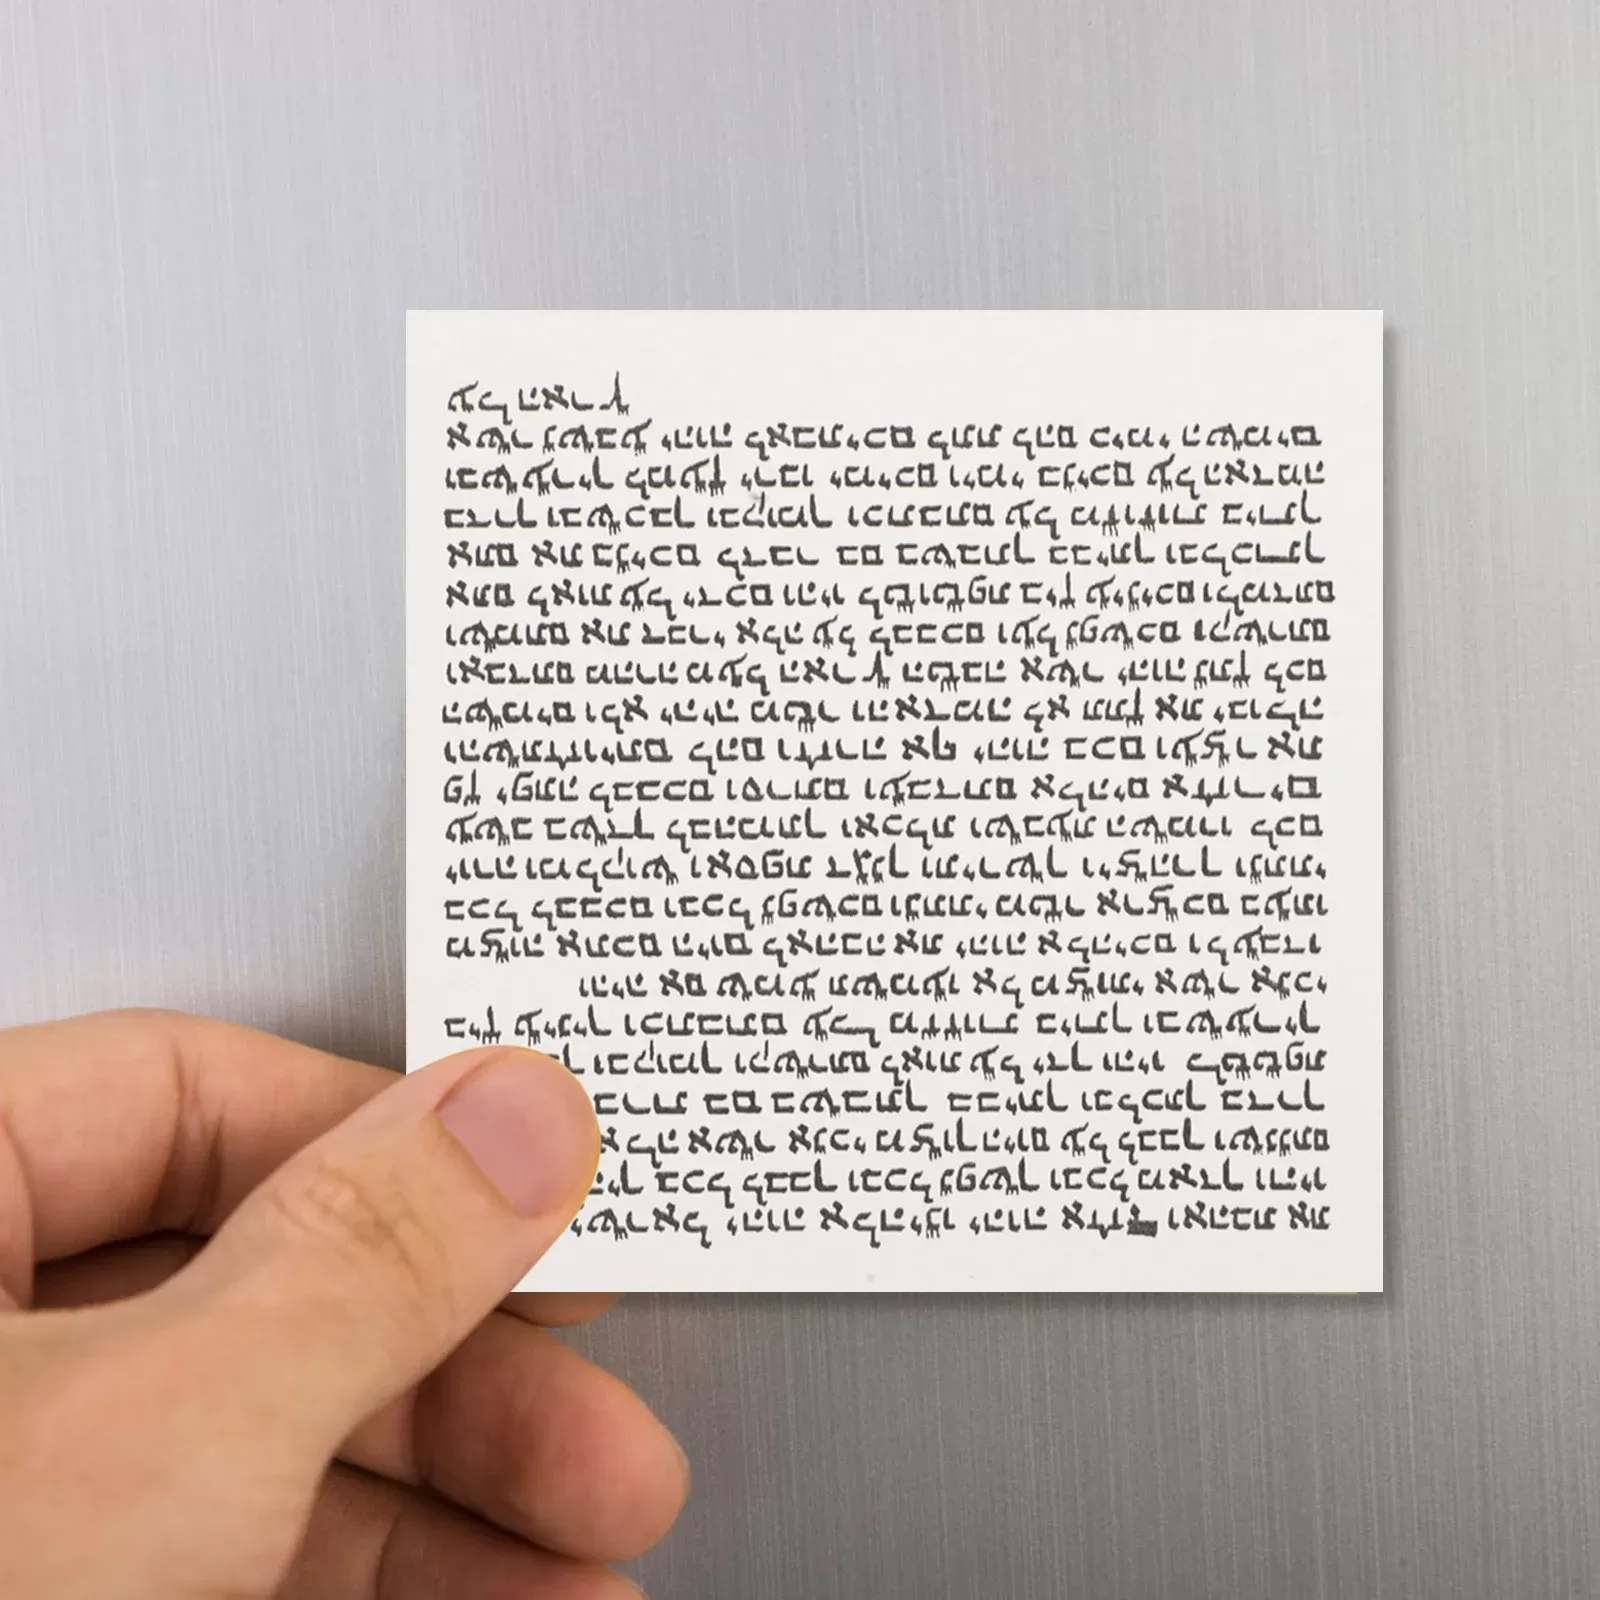 ישראל יהוה אלהינו יהוה אחד ואהבת את
בכל לבבך ובכל נפשך ובכל מאדך והיו
אשר אנכי מצוך היום על לבבך ושננתם
בם בשבתך בביתך ובלכתך בדרך
ובקומך וקשרתם לאות על ידך והיו לטטפת
בין עיניך וכתבתם על מזזות ביתך ובשעריך
והיה אם שמע תשמעו אל מצותי אשר אנכי
מצוה אתכם היום לאהבה את יהוה אלהיכם ולעבדו
בכל לבבכם ובכל נפשכם ונתתי מטר ארצכם בעתו
יורה ומלקוש ואספת דגנך ותירשך ויצהרך ונתתי
עשב בשדך לבהמתך ואכלת ושבעת השמרו לכם
פן יפתה לבבכם וסרתם ועבדתם אלהים אחרים
והשתחויתם להם וחרה אף יהוה בכם ועצר את
השמים ולא יהיה מטר והאדמה לא תתן את יבולה
ואבדתם מהרה מעל הארץ הטבה אשר יהוה נתן לכם
ושמתם את דברי אלה על לבבכם ועל נפשכם וקשרתם
אתם לאות על ידכם והיו לטוטפת בין עיניכם ולמדתם
אתם את בניכם לדבר בם בשבתך בביתך ובלכתך
בדרך ובשכבך ובקומך וכתבתם על מזוזות ביתך
ובשעריך למען ירבו ימיכם וימי בניכם על האדמה
אשר נשבע יהוה לאבתיכם לתת להם כימי השמים
על הארץ